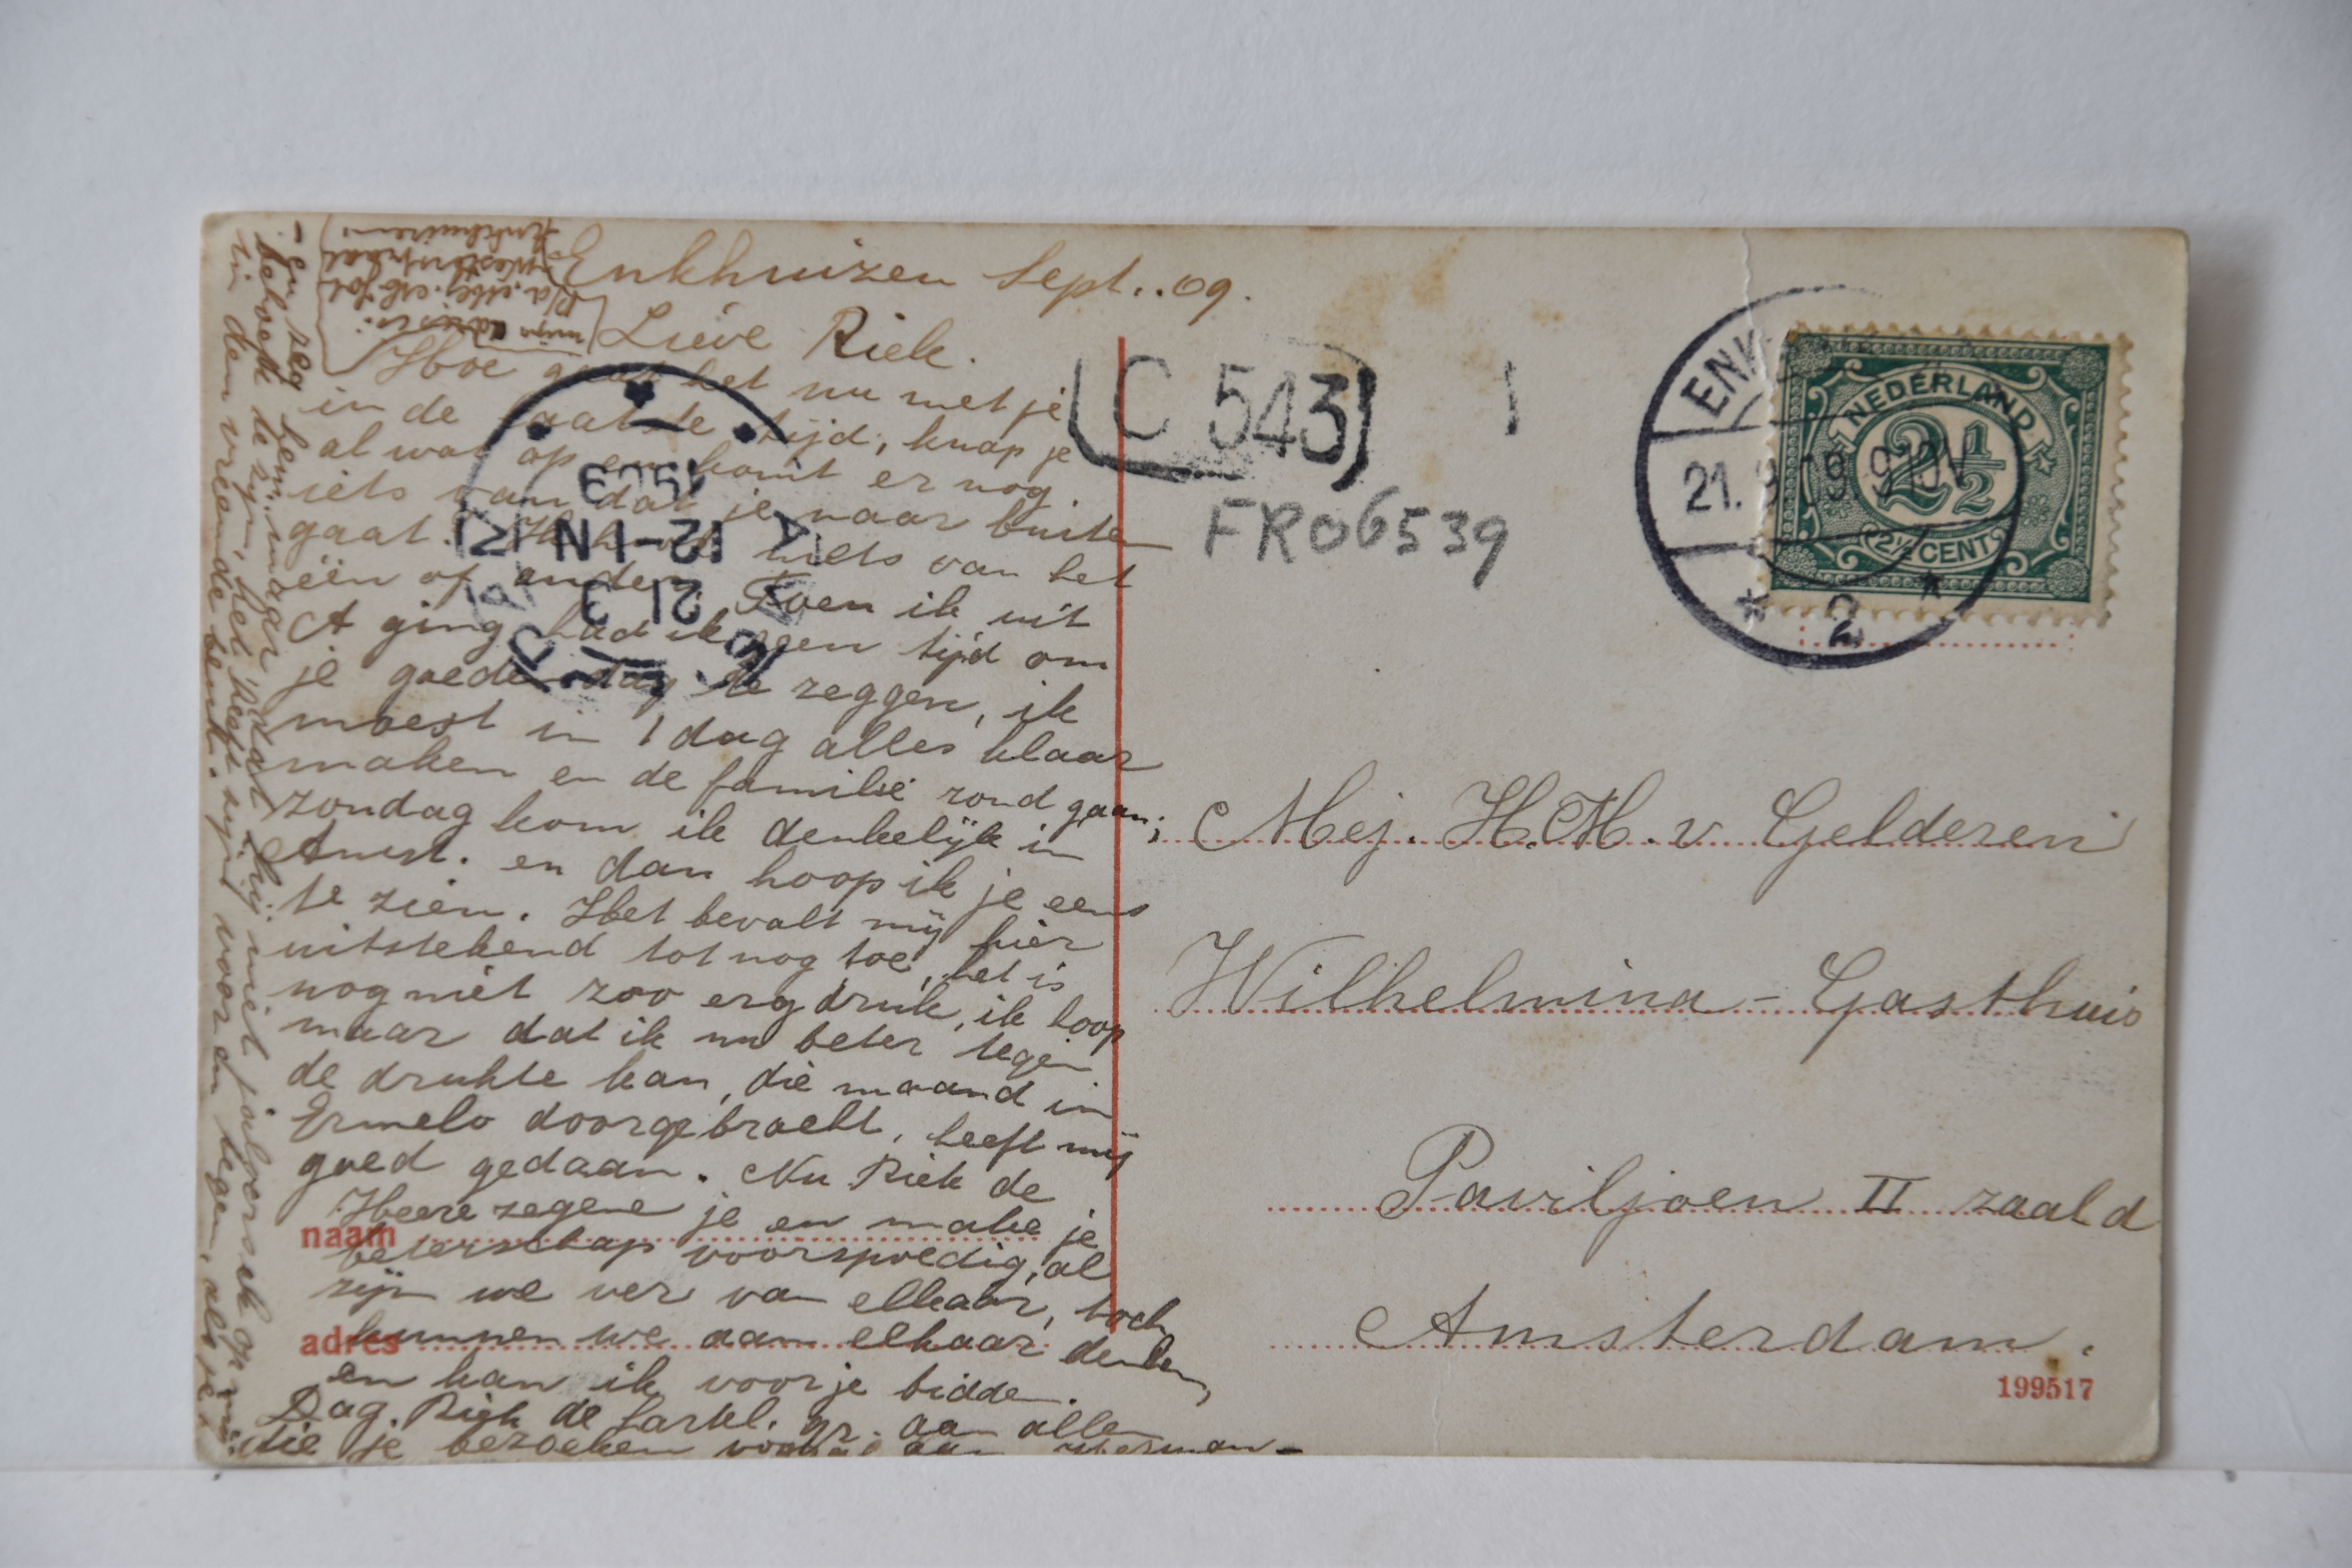 Enkhuizen Sept.. 09.
Lieve Riek.
Hoe gaat het nu met je
in de laatste tijd, knap je
al wat op en komt er nog
iets van dat je naar buiten
gaat. Ik niets van het
een of ander. Toen ik uit
A ging had ik geen tijd om
je goeden dag te zeggen, ik
moest in 1 dag alles klaar
maken en de familie rond gaan;
zondag kom ik denkelijk in
Amst. en dan hoop ik je eens
te zien. Het bevalt mij hier
uitstekend tot nog toe, het is
nog niet zoo erg druk, ik hoop
maar dat ik nu beter tegen
de drukte kan, die maand in
Ermelo doorgebracht, heeft mij
goed gedaan. Nu Riek de
Heere zegene je en make je
beterschap voorspoedig, al
zijn we ver van elkaar, toch
kunnen we aan elkaar denken,
en kan ik voor je bidden.
Dag. Riek de hartel. gr. aan allen
die je bezoeken vooral aan Herman -
- en zeg hem maar dat hij niet jaloersch op mij
behoeft te zijn, het heeft zijn voor en tegen, als je
in den vreemde bent.
mijn adres is:
p/a. Mej.
Westerstraat
Enkhuizen
naam
adres
C 543
FR06539
ENK
21. 9 09 9-10V
2
NEDERLAND
2½
2½ CENT
1909
12-1N
21 9
Mej. H.M. v Gelderen
Wilhelmina-Gasthuis
Paviljoen II zaal d
Amsterdam.
199517